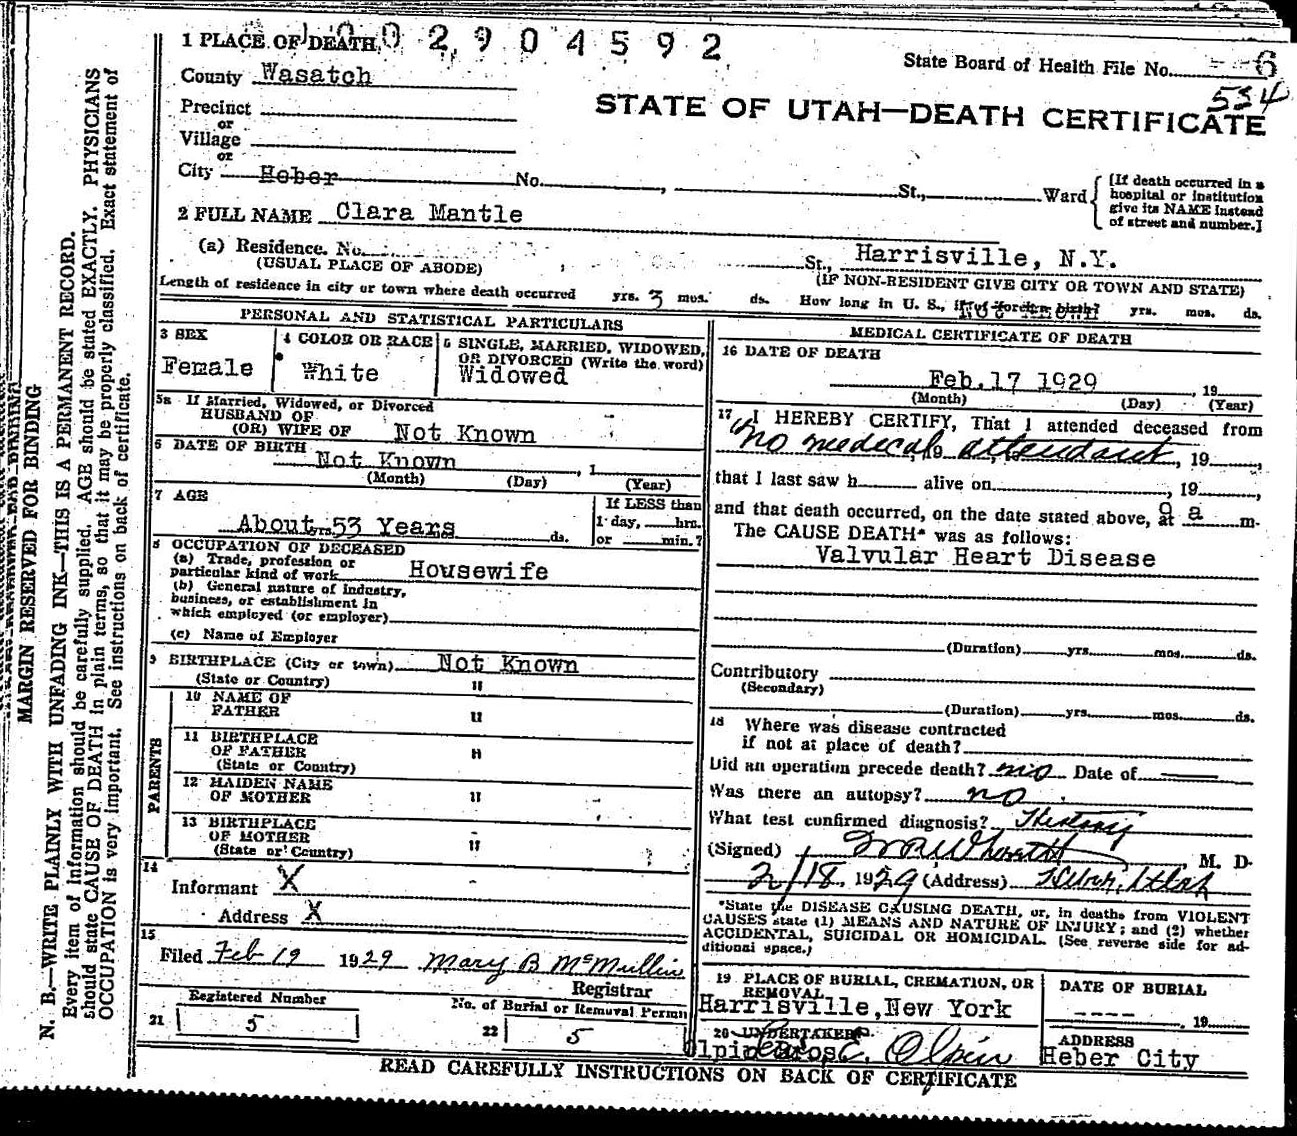 1 PLACE OF DEATH
1002904592
State Board of Health File No. 6
534
County Wasatch
STATE OF UTAH—DEATH CERTIFICATE
Precinct
or
Village
or
City Heber No. , St., Ward
[If death occurred in a
hospital or institution
give its NAME instead
of street and number.]
2 FULL NAME Clara Mantle
(a) Residence. No. St., Harrisville, N.Y.
(USUAL PLACE OF ABODE) (IF NON-RESIDENT GIVE CITY OR TOWN AND STATE)
Length of residence in city or town where death occurred yrs. 3 mos. ds. How long in U. S., if of foreign birth? yrs. mos. ds.
PERSONAL AND STATISTICAL PARTICULARS
3 SEX
Female
4 COLOR OR RACE
White
5 SINGLE, MARRIED, WIDOWED,
OR DIVORCED (Write the word)
Widowed
5a If Married, Widowed, or Divorced
HUSBAND OF
(OR) WIFE OF Not Known
6 DATE OF BIRTH Not Known , 1
(Month) (Day) (Year)
7 AGE
About yrs. 53 Years ds.
If LESS than
1 day, hrs.
or min.?
8 OCCUPATION OF DECEASED
(a) Trade, profession or
particular kind of work Housewife
(b) General nature of industry,
business, or establishment in
which employed (or employer)
(c) Name of Employer
9 BIRTHPLACE (City or town) Not Known
(State or Country) "
PARENTS
10 NAME OF
FATHER "
11 BIRTHPLACE
OF FATHER "
(State or Country)
12 MAIDEN NAME
OF MOTHER "
13 BIRTHPLACE
OF MOTHER "
(State or Country)
14
Informant X
Address X
15
Filed Feb 19 1929 Mary B McMullin
Registrar
Registered Number
21 5
No. of Burial or Removal Permit
22 5
MEDICAL CERTIFICATE OF DEATH
16 DATE OF DEATH
Feb. 17 1929 , 19
(Month) (Day) (Year)
17 I HEREBY CERTIFY, That I attended deceased from
no medical attendant , 19 ,
that I last saw h alive on , 19 ,
and that death occurred, on the date stated above, at 9 a m.
The CAUSE DEATH* was as follows:
Valvular Heart Disease
(Duration) yrs. mos. ds.
Contributory
(Secondary)
(Duration) yrs. mos. ds.
18 Where was disease contracted
if not at place of death?
Did an operation precede death? no Date of
Was there an autopsy? no
What test confirmed diagnosis? History
(Signed) , M. D.
2/18 1929 (Address) Heber, Utah
*State the DISEASE CAUSING DEATH, or, in deaths from VIOLENT
CAUSES state (1) MEANS AND NATURE OF INJURY; and (2) whether
ACCIDENTAL, SUICIDAL OR HOMICIDAL. (See reverse side for ad-
ditional space.)
19 PLACE OF BURIAL, CREMATION, OR
REMOVAL
Harrisville, New York
DATE OF BURIAL
---- , 19
20 UNDERTAKER
Olpin Bros E. Olpin
ADDRESS
Heber City
READ CAREFULLY INSTRUCTIONS ON BACK OF CERTIFICATE
MARGIN RESERVED FOR BINDING
N. B.—WRITE PLAINLY WITH UNFADING INK—THIS IS A PERMANENT RECORD.
Every item of information should be carefully supplied. AGE should be stated EXACTLY. PHYSICIANS
should state CAUSE OF DEATH in plain terms, so that it may be properly classified. Exact statement of
OCCUPATION is very important. See instructions on back of certificate.